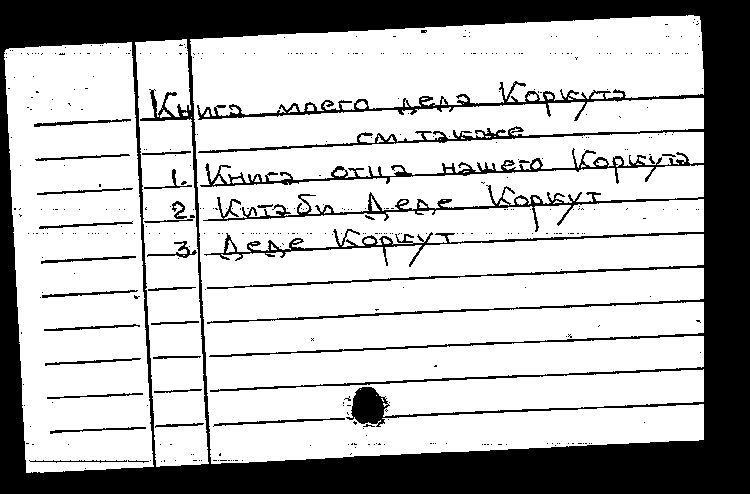 Книга моего деда Коркута
см. также
1. Книга отца нашего Коркута
2. Китаби Деде Коркут
3. Деде Коркут